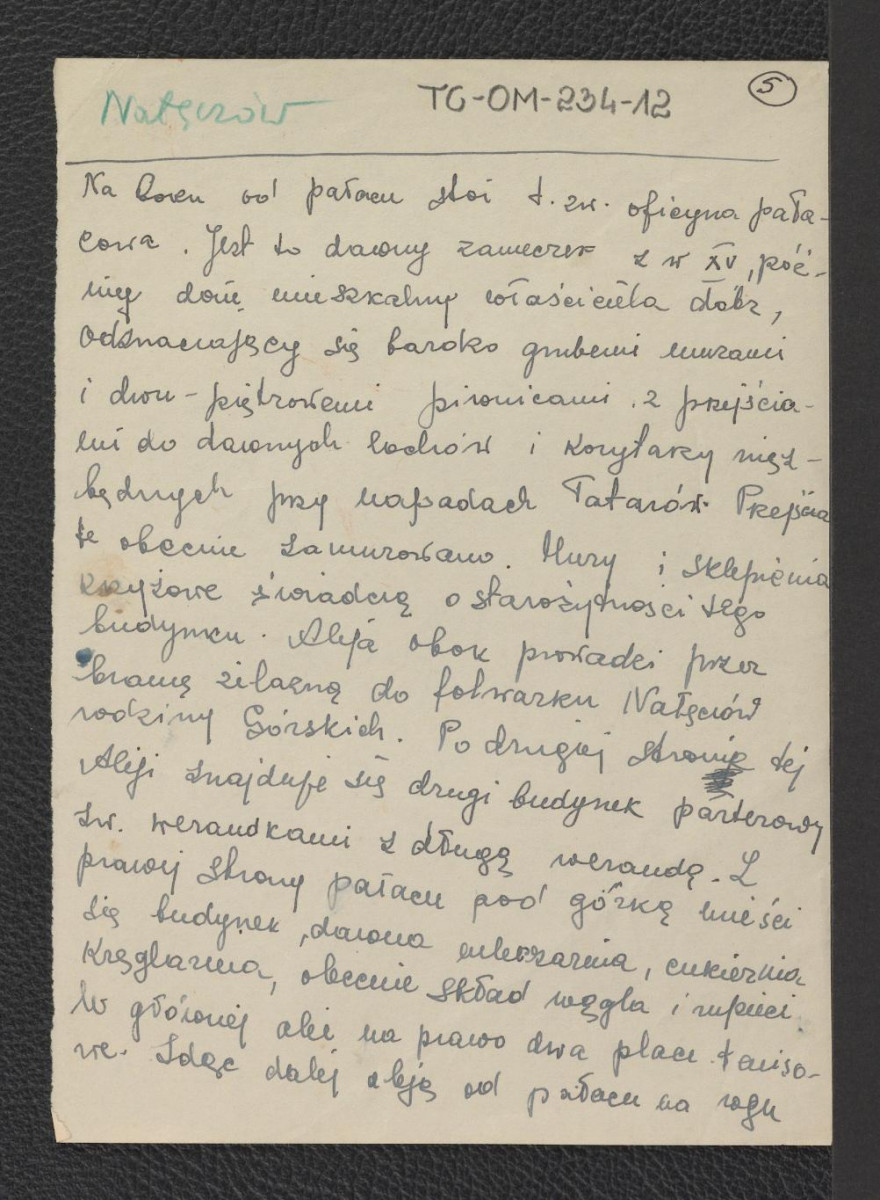 Nałęczów TG-OM-234-12 5
Na boku od pałacu stoi t. zw. oficyna pała-
cowa. Jest to dawny zameczek z w XV, póź-
niej dom mieszkalny właściciela dóbr,
odznaczający się bardzo grubemi murami
i dwu-piętrowemi piwnicami z przejścia-
mi do dawnych lochów i korytarzy niez-
będnych przy napadach Tatarów. Przejścia
te obecnie zamurowano. Mury i sklepienia
krzyżowe świadczą o starożytności tego
budynku. Aleja obok prowadzi przez
bramę żelazną do folwarku Nałęczów
rodziny Górskich. Po drugiej stronie tej
Aleji znajduje się drugi budynek parterowy
zw. werandkami z długą werandą. Z
prawej strony pałacu pod górką mieści
się budynek, dawna mleczarnia, cukiernia
kręglarnia, obecnie skład węgla i rupieci.
W głównej alei na prawo dwa place teniso-
we. Idąc dalej aleją od pałacu na rogu